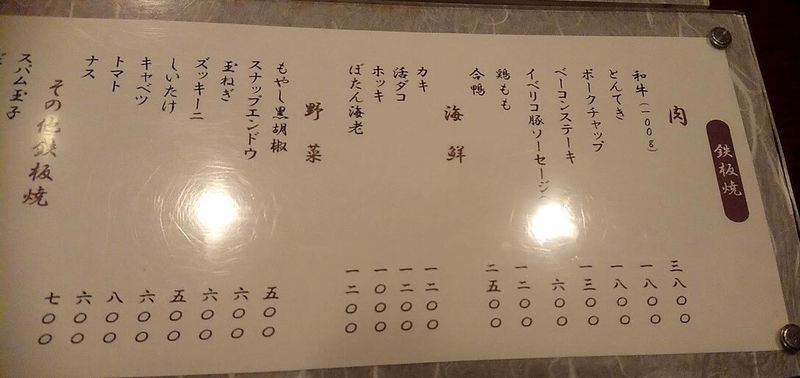 鉄板焼
肉
和牛(一〇〇g) 三八〇〇
とんてき 一八〇〇
ポークチャップ 一八〇〇
ベーコンステーキ 一三〇〇
イベリコ豚ソーセージ 六〇〇
鶏もも 一二〇〇
合鴨 二五〇〇
海鮮
カキ 一二〇〇
活ダコ 一二〇〇
ホッキ 一〇〇〇
ぼたん海老 一二〇〇
野菜
もやし黒胡椒 五〇〇
スナップエンドウ 六〇〇
玉ねぎ 六〇〇
ズッキーニ 五〇〇
しいたけ 六〇〇
キャベツ 八〇〇
トマト 六〇〇
ナス 七〇〇
その他鉄板焼
スパム玉子